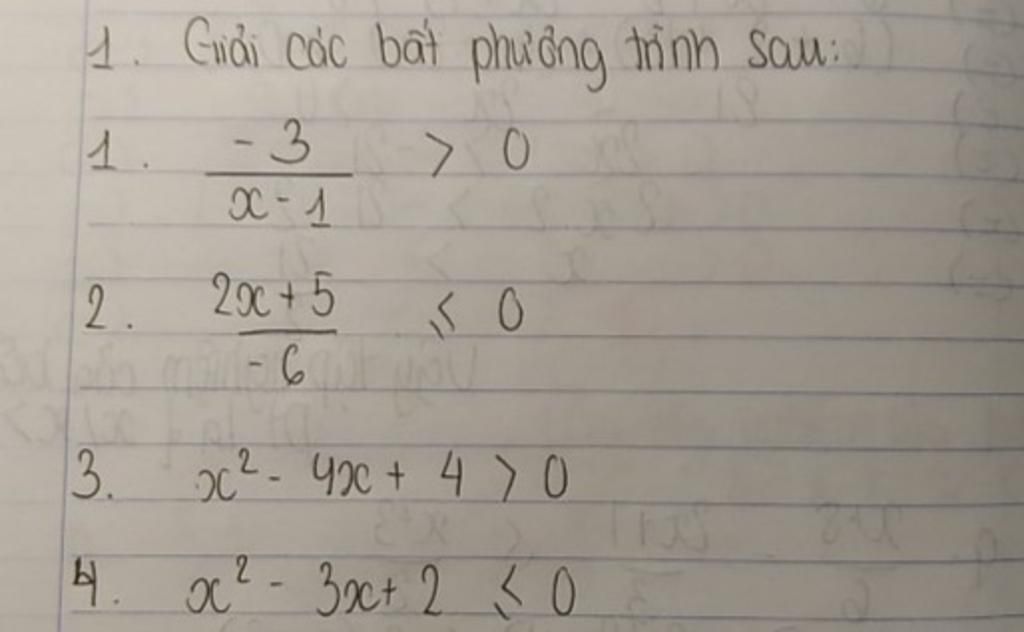 1. Giải các bất phương trình sau:
1. -3/(x-1) > 0
2. (2x+5)/-6 ≤ 0
3. x² - 4x + 4 > 0
4. x² - 3x + 2 ≤ 0